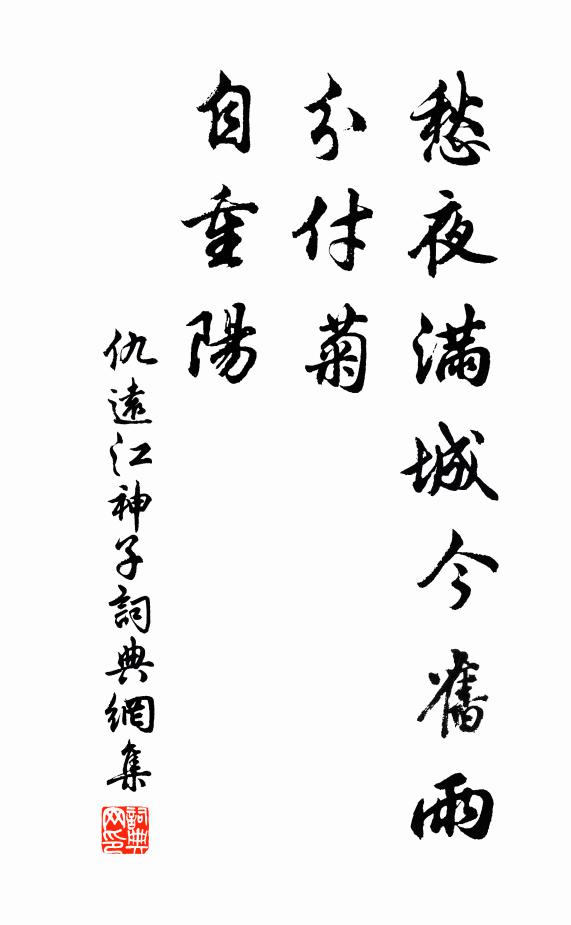 愁夜滿城今舊雨
分付菊
自重陽
仇遠江神子詞典網集
詞典
网印